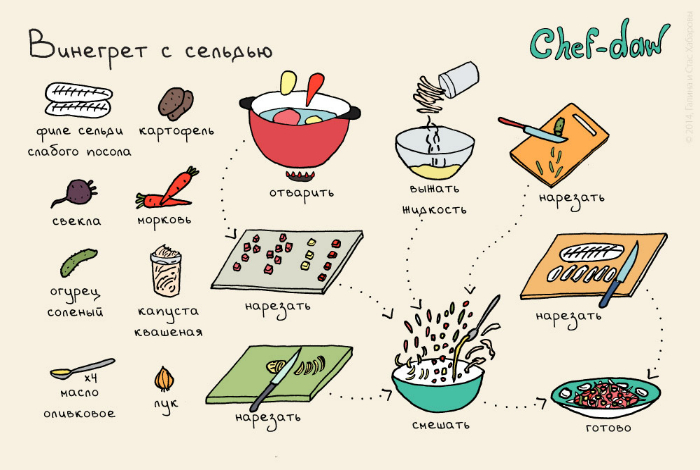 Винегрет с сельдью
Chef-daw
филе сельди
слабого посола
картофель
свекла
морковь
огурец
соленый
капуста
квашеная
x4
масло
оливковое
лук
отварить
выжать
жидкость
нарезать
нарезать
нарезать
нарезать
смешать
готово